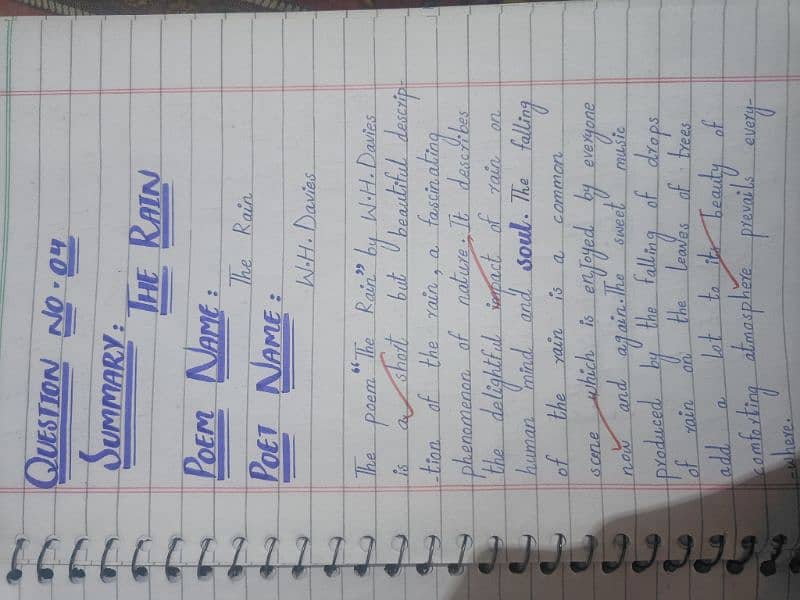 QUESTION NO-04
SUMMARY:
THE RAIN
POEM NAME:
The Rain
POET NAME:
W.H. Davies
The poem "The Rain" by W.H. Davies
is a short but beautiful descrip-
-tion of the rain, a fascinating
phenomenon of nature. It describes
the delightful impact of rain on
human mind and soul. The falling
of the rain is a common
scene which is enjoyed by everyone
now and again. The sweet music
produced by the falling of drops
of rain on the leaves of trees
add a lot to its beauty of
comforting atmosphere prevails every-
-where.